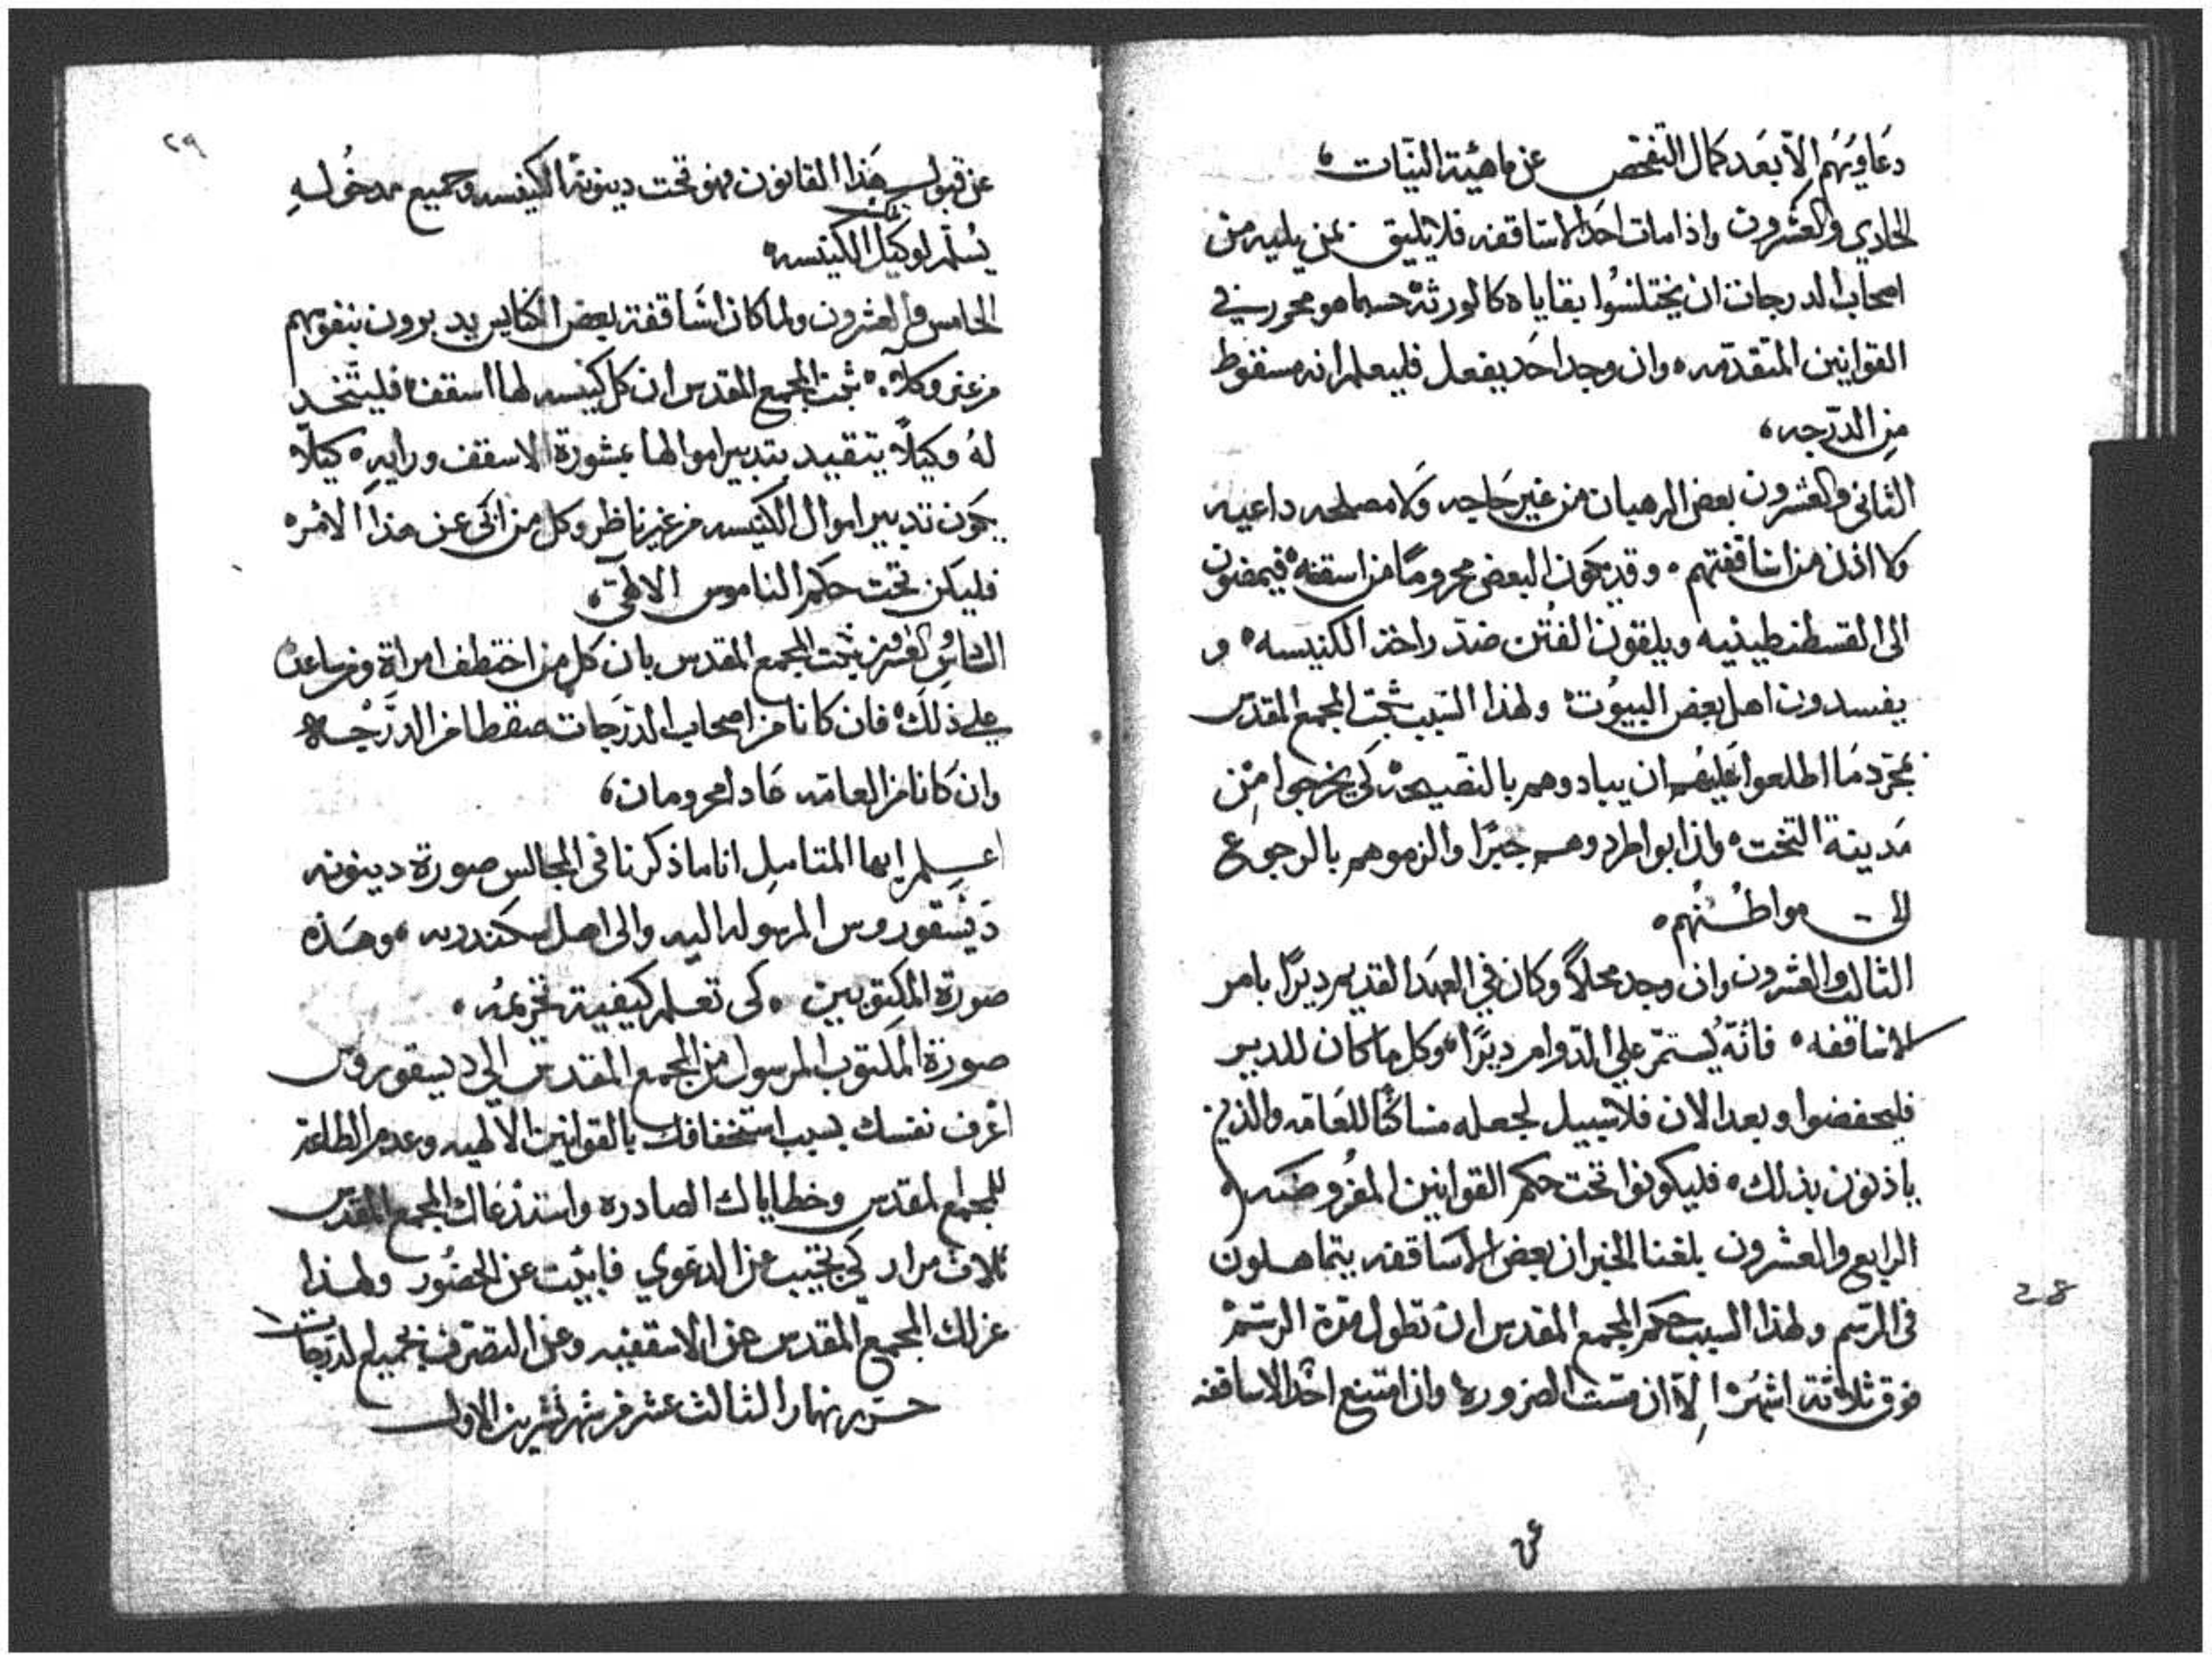 دعاويهم الا بعد كمال التفحص عن ماهية النيات
الحادي والعشرون واذا مات احد الاساقفه فلا يليق بمن يليه من
اصحاب الدرجات ان يختلسوا بقاياه كالورثة حسبما هو محرر في
القوانين المتقدمه وان وجد احد يفعل فليعلم انه مسقوط
من الدرجه
الثاني والعشرون بعض الرهبان من غير حاجه ولا مصلحه داعيه
ولا اذن من اساقفتهم وقد يكون البعض محروما من اسقفه فيمضون
الى القسطنطينيه ويلقون الفتن ضد راحة الكنيسه و
يفسدون اهل بعض البيوت ولهذا السبب ثبت المجمع المقدس
بمجرد ما اطلعوا عليهم ان يبادوهم بالنصيحه كي يخرجوا من
مدينة التخت واذا ابوا طردوهم جبرا والزموهم بالرجوع
الى مواطنهم
الثالث والعشرون وان وجد محلا وكان في العهد القديم ديرا بامر
الاساقفه فانه يستمر على الدوام ديرا وكل ما كان للدير
فليحفضوا وبعد الان فلا سبيل لجعله مساكنا للعامه والذين
ياذنون بذلك فليكونوا تحت حكم القوانين المفروضه
الرابع والعشرون بلغنا الخبر ان بعض الاساقفه يتماهلون
في الرسم ولهذا السبب حكم المجمع المقدس ان تطول مدة الرسم
فوق ثلاثة اشهر الا ان مست الضروره وان امتنع احد الاساقفه
عن
28
٢٩
عن قبول هذا القانون فهو تحت دينونة الكنيسه وجميع مدخوله
يسلم لوكيل الكنيسه
الخامس والعشرون ولما كان اساقفة بعض الكنايس يدبرون بنفوسهم
من غير وكلا ثبت المجمع المقدس ان كل كنيسه لها اسقف فليتخد
له وكيلا يتقيد بتدبير اموالها بمشورة الاسقف ورايه كيلا
يكون تدبير اموال الكنيسه من غير ناظر وكل من ابى عن هذا الامر
فليكن تحت حكم الناموس الالهي
السادس والعشرون ثبت المجمع المقدس بان كل من اختطف امراة ومن ساعده
على ذلك فان كانا من اصحاب الدرجات سقطا من الدرجه
وان كانا من العامه عادا محرومان
اعلم ايها المتامل انا ما ذكرنا في المجالس صورة دينونه
ديسقوروس المرسوله اليه والى اهل اسكندريه وهذه
صورة المكتوبين كي تعلم كيفية تحريمه
صورة المكتوب المرسول من المجمع المقدس الى ديسقوروس
اعرف نفسك بسبب استخفافك بالقوانين الالهيه وعدم الطاعه
للمجامع المقدس وخطاياك الصادره واستدعاك المجمع المقدس
ثلاث مرار كي تجيب عن الدعوي فابيت عن الحضور ولهذا
عزلك المجمع المقدس عن الاسقفيه وعن التصرف بجميع الدرجات
حرر نهار الثالث عشر من شهر تشرين الاول